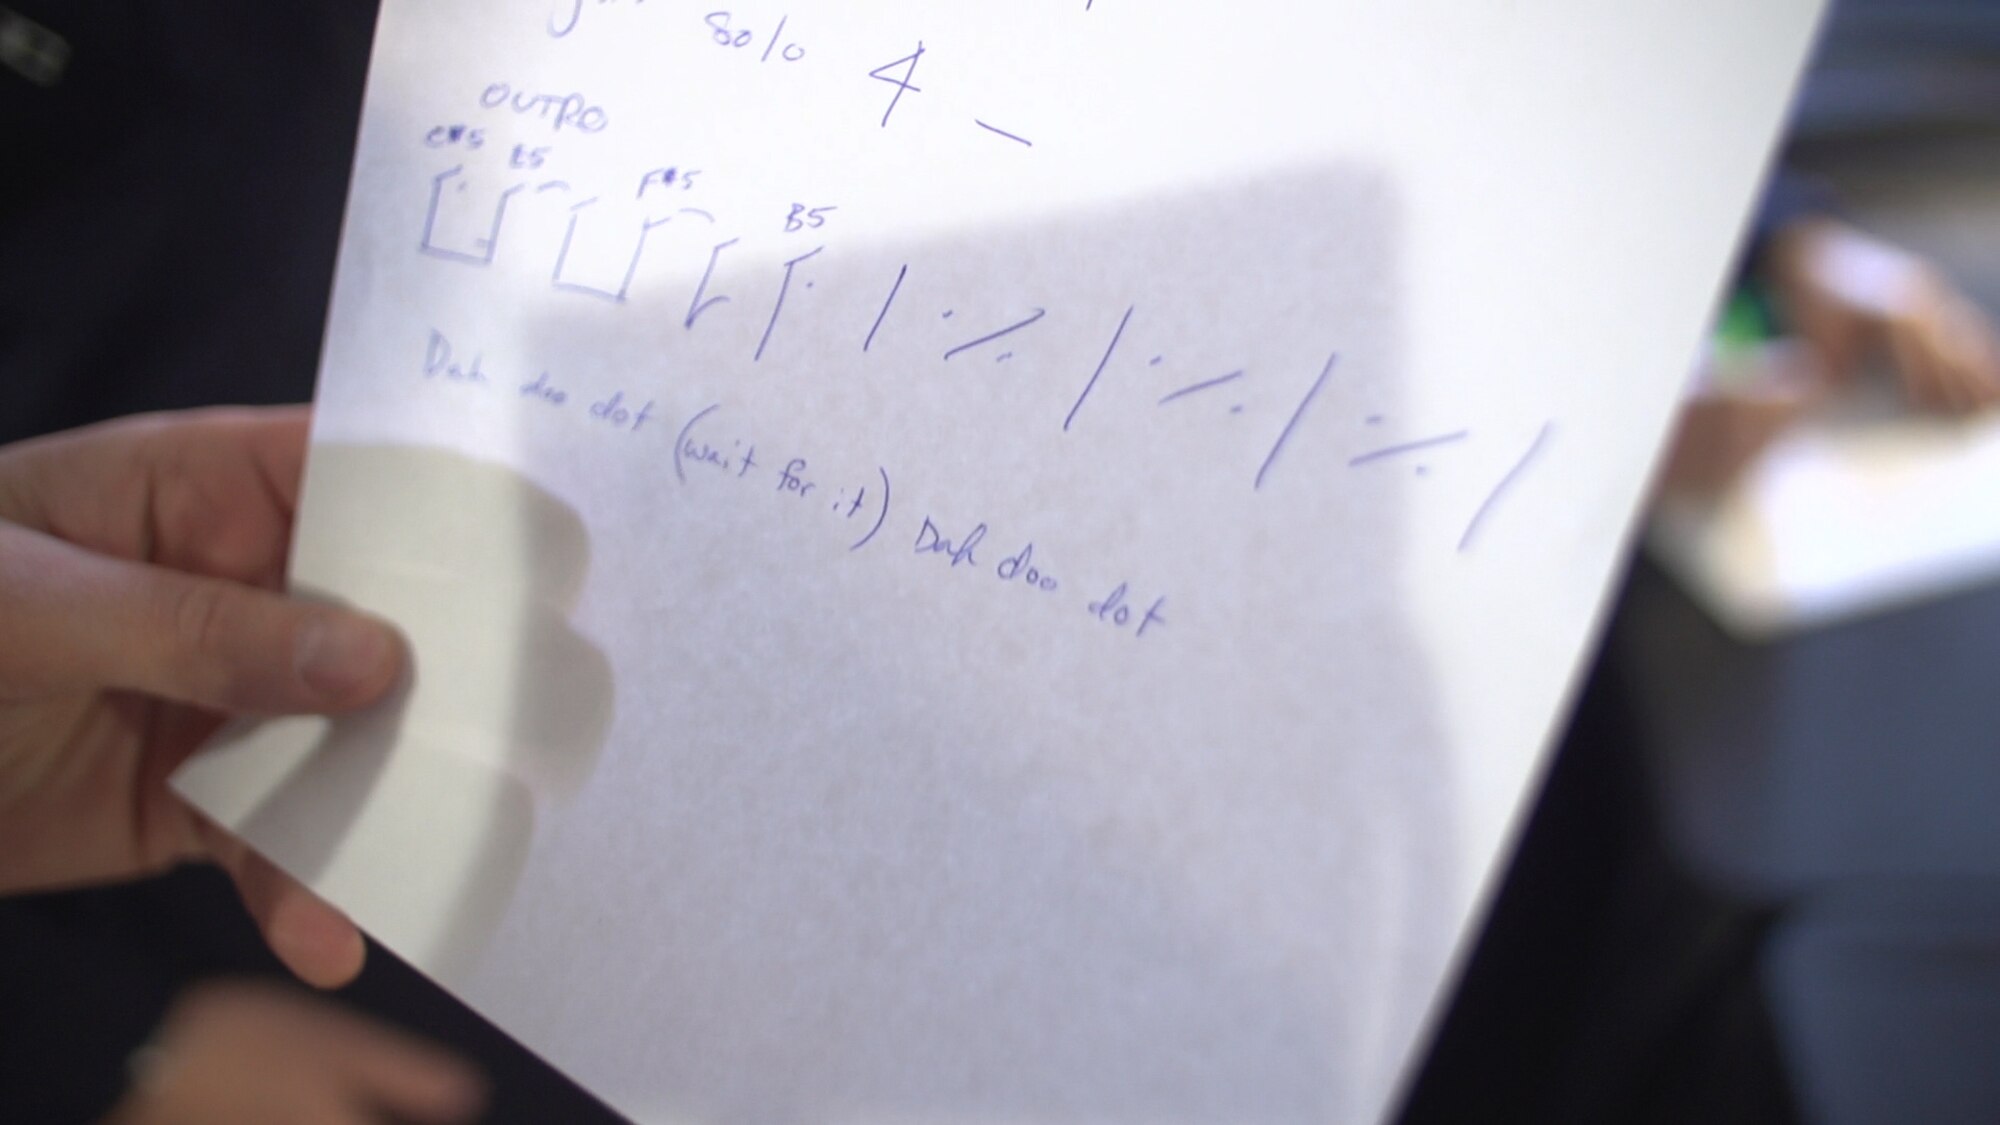 Solo 4 _
OUTRO
C#5 E5 F#5 B5
/ ٪ / ٪ / ٪ /
Dah doo dot (wait for it) Dah doo dot